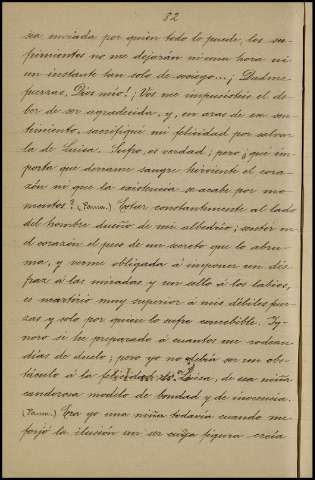 82
sea enviada por quien todo lo puede, los su-
frimientos no me dejarán ni una hora ni
un instante tan solo de sosiego...; Dadme
fuerzas, Dios mio! ¡Vos me impusísteis el de-
ber de ser agradecida, y, en aras de ese sen-
timiento, sacrifiqué mi felicidad por salvar
la de Luisa. Sufro, es verdad; pero ¿qué im-
porta que derrame sangre hirviente el cora-
zón ni que la existencia se acabe por mo-
mentos? (Pausa.) Estar constantemente al lado
del hombre dueño de mi albedrío; sentir en
el corazón el peso de un secreto que lo abru-
ma, y verme obligada á imponer un dis-
fraz á las miradas y un sello á los labios,
es martirio muy superior á mis débiles fuer-
zas y solo por quien lo sufre concebible. Ig-
noro si he preparado á cuantos me rodean
días de duelo; pero yo no debía ser un obs-
táculo á la felicidad de Luisa, de esa niña
candorosa modelo de bondad y de inocencia.
(Pausa.) Era yo una niña todavía cuando me
forjó la ilusión un ser cuya figura creía